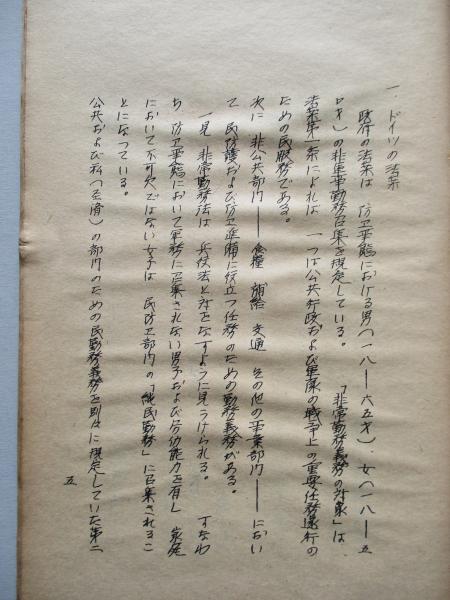 一. ドイツの法案
政府の法案は 防卫事態における男(一八——六五才)、女(一八——五
〇才)の非軍事勤務召集を規定している。「非常勤務義務の対象」は
法案第一条によれば 一つは公共行政および軍隊の戦争上の重要任務遂行の
ための民服務である。
次に 非公共部門——食糧 補給 交通 その他の事業部門——におい
て 民防護および防卫準備に役立つ任務のための勤務義務がある。
一見 非常勤務法は 兵役法と対をなすように見うけられる。 すなわ
ち 防卫事態において軍務に召集されない男子および労幼能力を有し 家庭
において不可欠ではない女子は 民防卫部門の「純民勤務」に召集されるこ
とになっている。
公共および私(経済)の部門のための民勤務義務を別々に規定していた第二
五